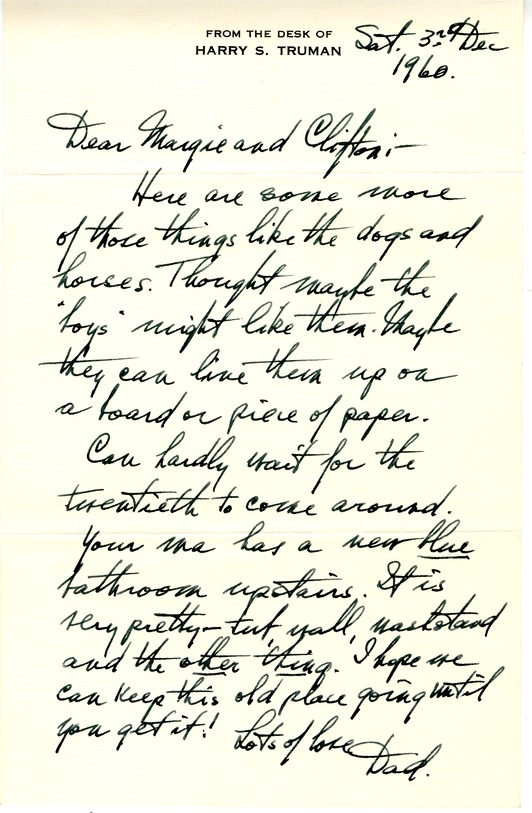 FROM THE DESK OF
HARRY S. TRUMAN
Sat. 3rd Dec
1960.
Dear Margie and Clifton:—
Here are some more
of those things like the dogs and
horses. Thought maybe the
"boys" might like them. Maybe
they can line them up on
a board or piece of paper.
Can hardly wait for the
twentieth to come around.
Your ma has a new blue
bathroom upstairs. It is
very pretty—tub, wall, washstand
and the other thing. I hope we
can keep this old place going until
you get it!
Lots of love
Dad.